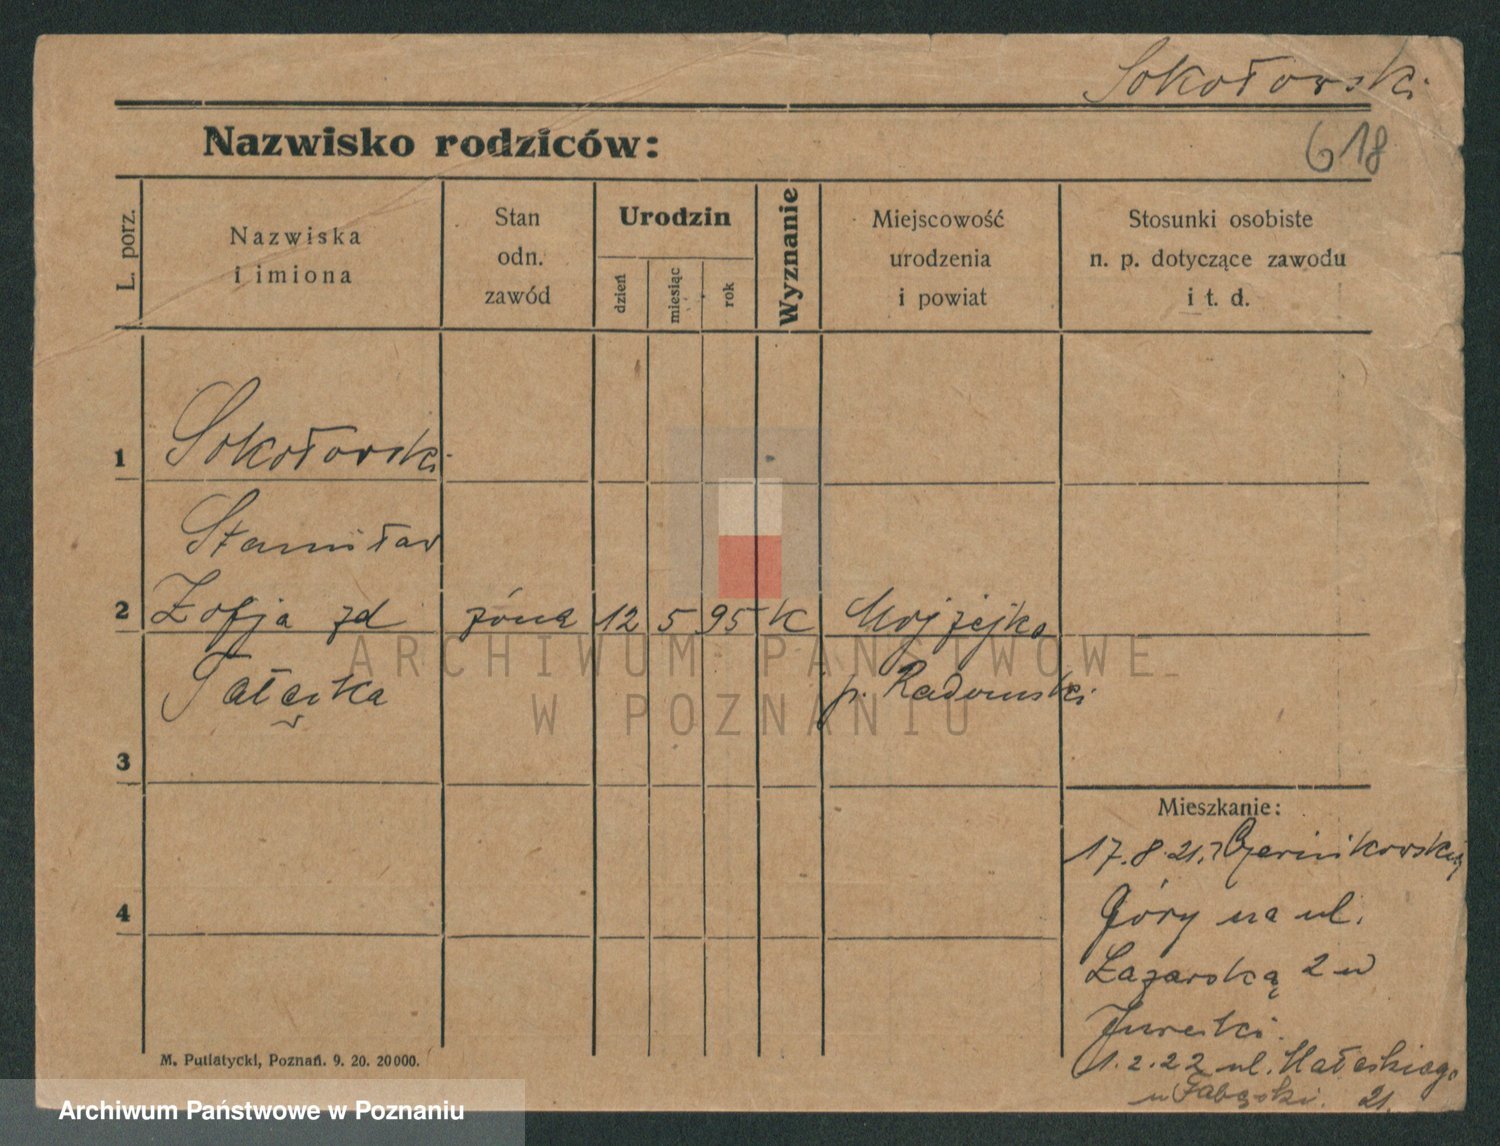 Sokołowski
618
Nazwisko rodziców:
L. porz.
Nazwiska
i imiona
Stan
odn.
zawód
Urodzin
dzień
miesiąc
rok
Wyznanie
Miejscowość
urodzenia
i powiat
Stosunki osobiste
n. p. dotyczące zawodu
i t. d.
1
Sokołowski
Stanisław
2 Zofja zd żona 12 5 95 K
p. Radomski
3
4
Mieszkanie:
17.8.21.
Góry na ul.
Łazarską 2 u
1.2.22 ul. Małeckiego
u 21.
M. Putiatycki, Poznań. 9. 20. 20000.
ARCHIWUM PAŃSTWOWE
W POZNANIU
Archiwum Państwowe w Poznaniu